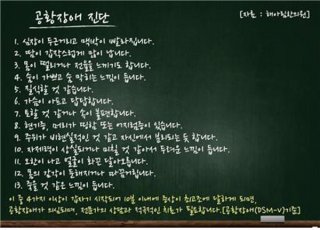 공황장애 진단
[자료 : 해아림한의원]
1. 심장이 두근거리고 맥박이 빨라집니다.
2. 땀이 갑작스럽게 많이 납니다.
3. 몸이 떨리거나 전율을 느끼기도 합니다.
4. 숨이 가쁘고 숨 막히는 느낌이 듭니다.
5. 질식할 것 같습니다.
6. 가슴이 아프고 답답합니다.
7. 토할 것 같거나 속이 불편합니다.
8. 현기증, 머리가 띵함 또는 어지럼증이 있습니다.
9. 주위가 비현실적인 것 같고 자신에서 분리되는 듯 합니다.
10. 자제력이 상실되거나 미칠 것 같아서 두려운 느낌이 듭니다.
11. 오한이 나고 얼굴이 화끈 달아오릅니다.
12. 몸의 감각이 둔해지거나 따끔거립니다.
13. 죽을 것 같은 느낌이 듭니다.
이 중 4가지 이상이 갑자기 시작되어 10분 이내에 증상이 최고조에 달하게 되면,
공황장애가 의심되며, 전문가의 상담과 적극적인 치료가 필요합니다.[공황장애(DSM-V)기준]